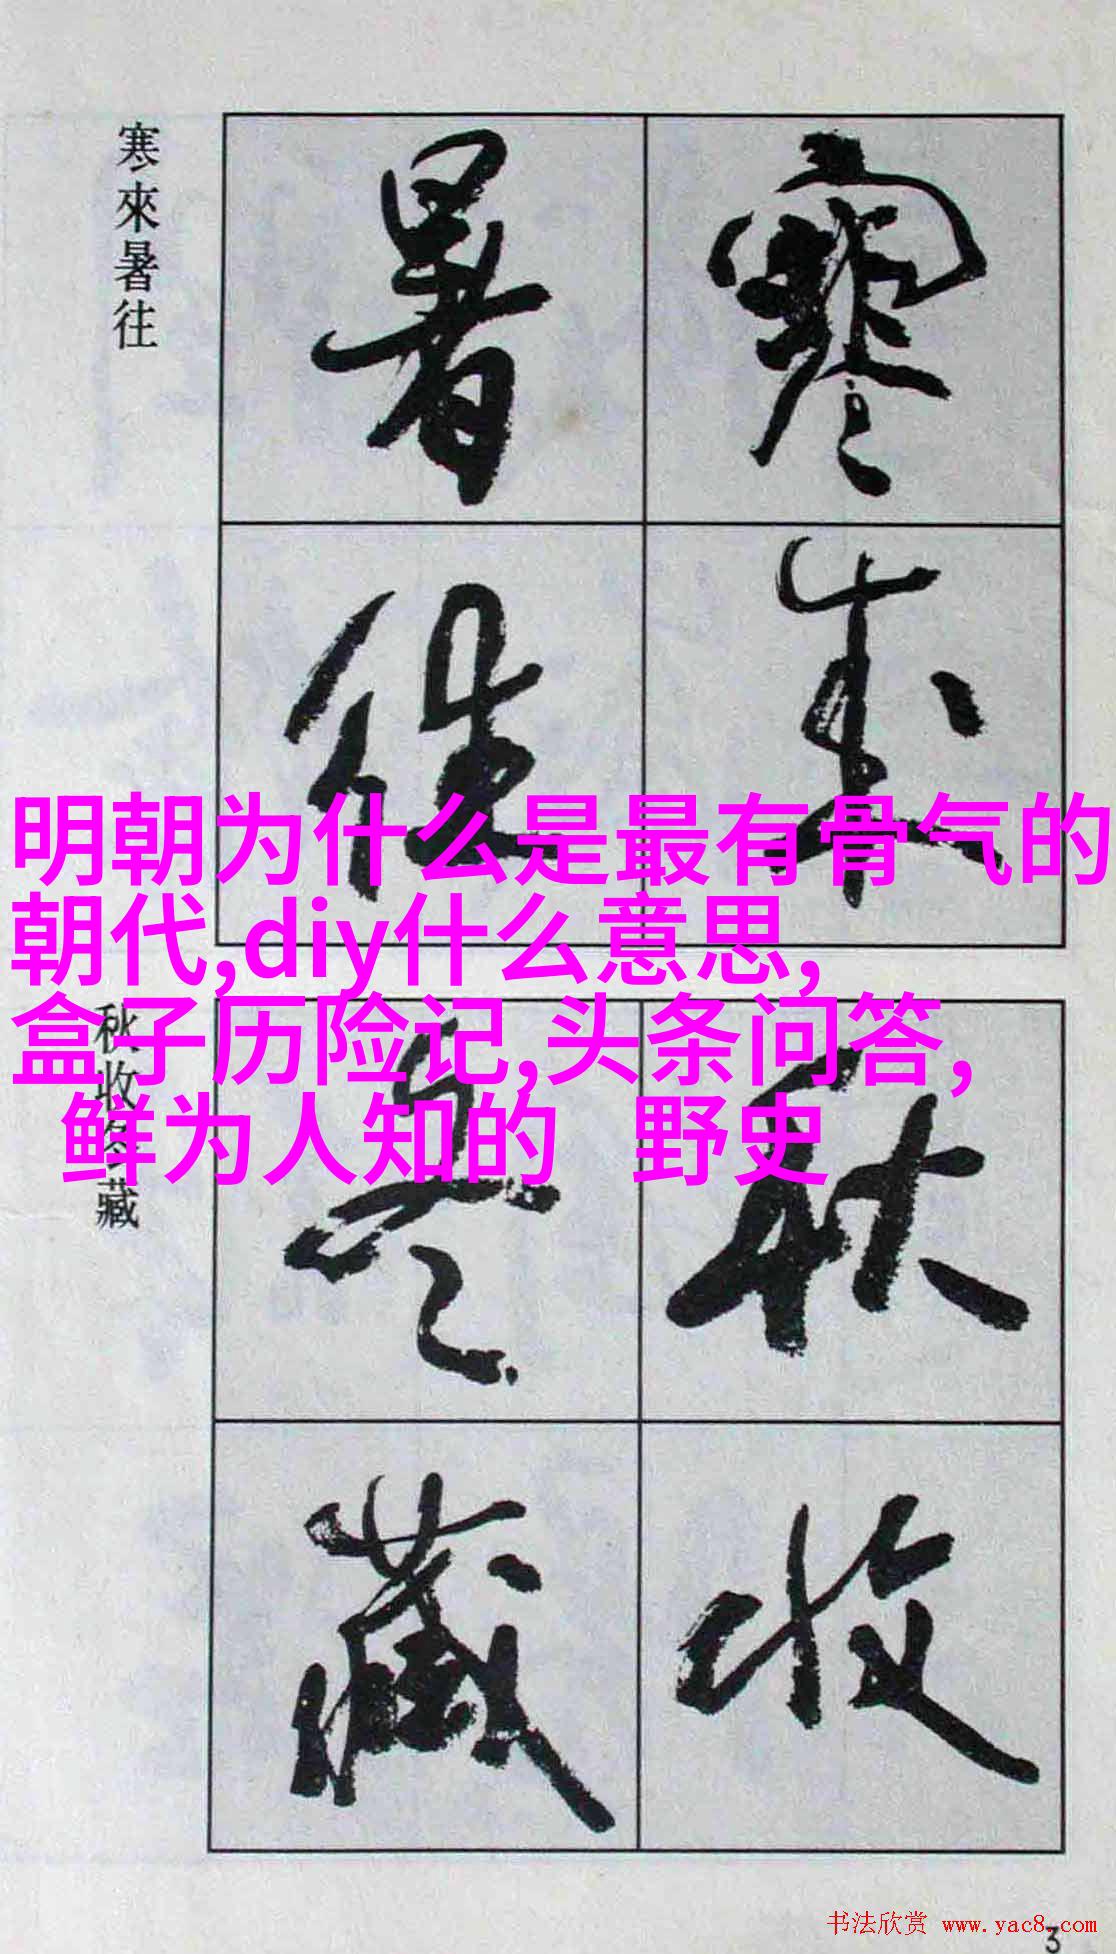 寒來暑往
寒來
暑往
明朝为什么是最有骨气的
朝代,diy什么意思,
盒子历险记,头条问答,
鲜为人知的 野史
秋收冬藏
秋收
冬藏
书法欣赏 www.yac8.com
3